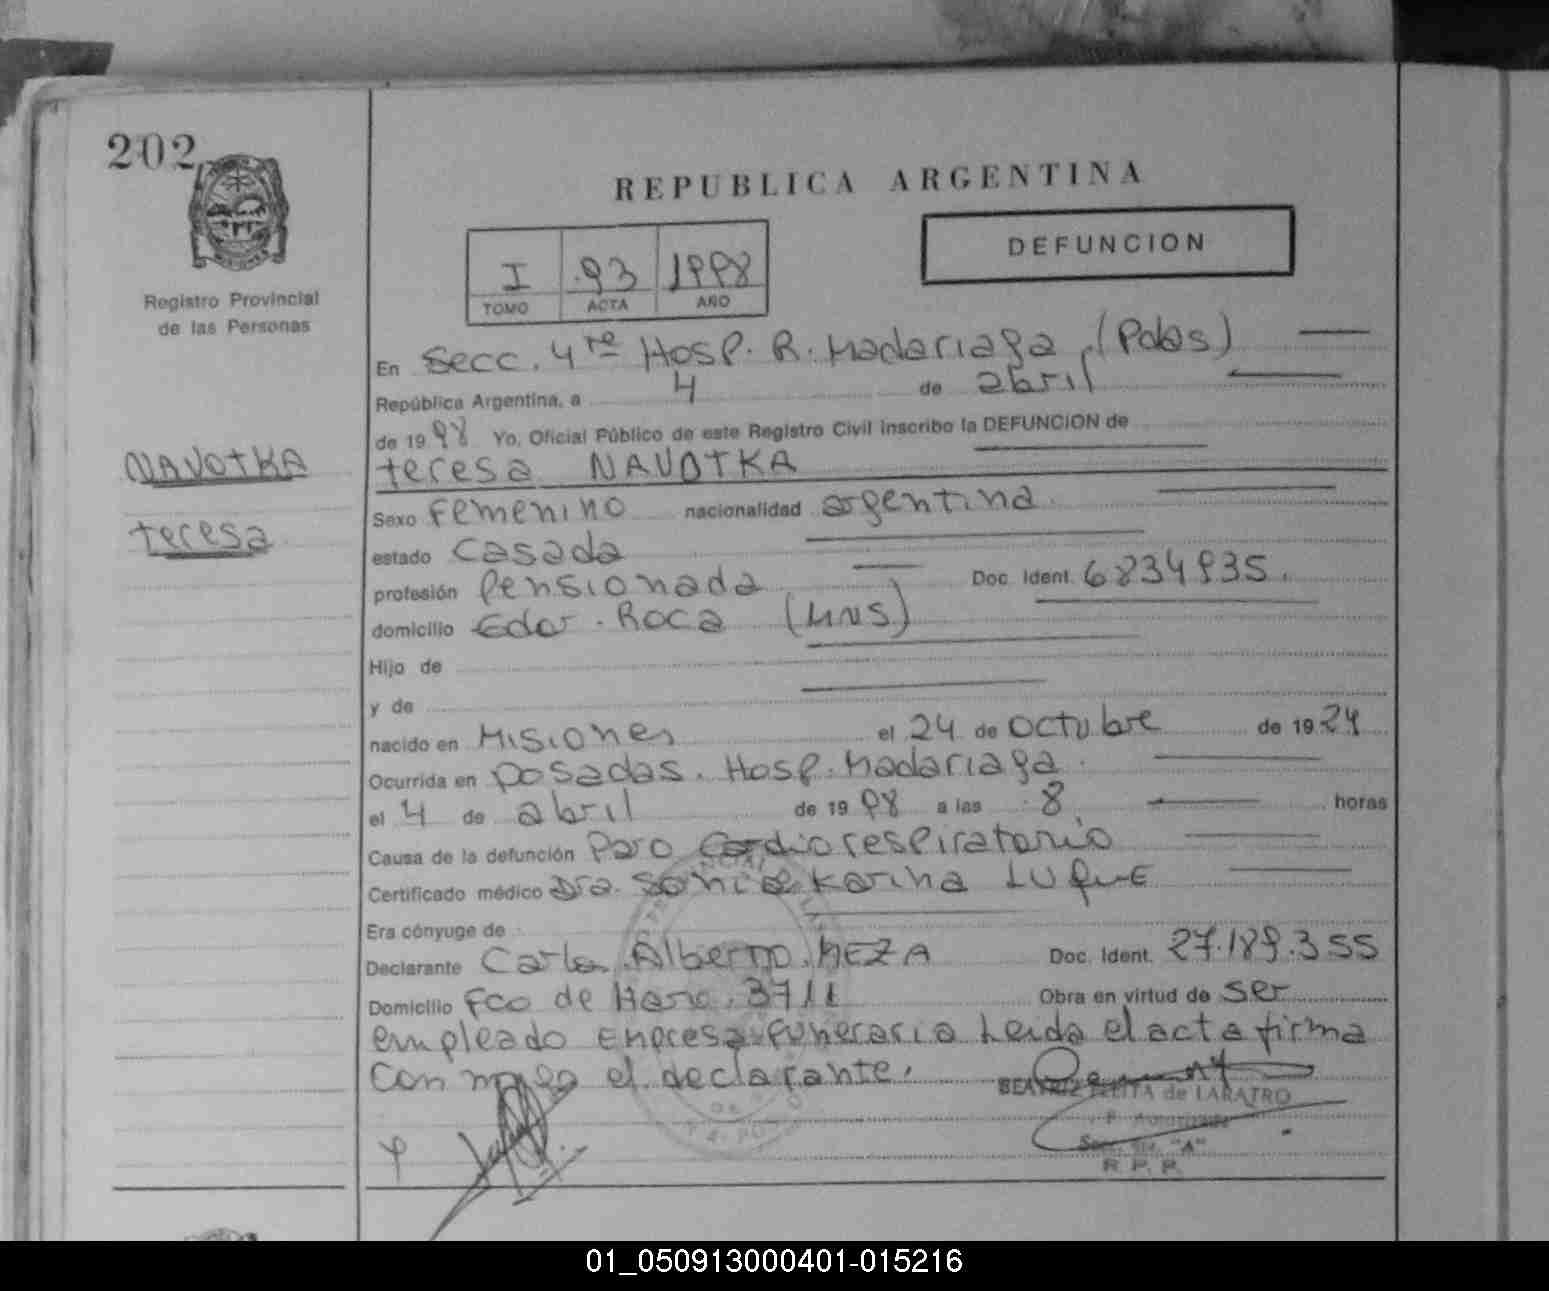 202
Registro Provincial
de las Personas
REPUBLICA ARGENTINA
DEFUNCION
I 93 1998
TOMO ACTA AÑO
En Secc. 4ta Hosp. R. Madariaga (Pdas)
República Argentina, a 4 de abril
de 1998 Yo, Oficial Público de este Registro Civil inscribo la DEFUNCION de
NAVOTKA
teresa
teresa NAVOTKA
Sexo Femenino nacionalidad argentina
estado Casada
profesión Pensionada Doc. Ident. 6834935.
domicilio Gdor. Roca (MNS)
Hijo de
y de
nacido en Misiones el 24 de octubre de 1924
Ocurrida en posadas. Hosp. Madariaga.
el 4 de abril de 1998 a las 8 horas
Causa de la defunción Paro Cardiorespiratorio
Certificado médico Dra. Sonia Karina LUQUE
Era cónyuge de
Declarante Carlos Alberto MEZA Doc. Ident. 27.189.355
Domicilio Fco de Haro. 3711 Obra en virtud de ser
empleado Enpresa funeraria Leida el acta firma
con migo el declarante.
BEATRIZ de LABATRO
"A"
R. P. P.
01_050913000401-015216